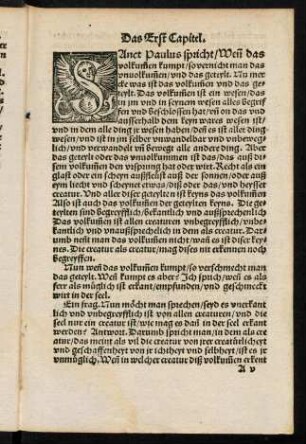 Das Erst Capitel.
SAnct Paulus spricht/Weñ das
volkum̃en kumpt/so vernicht man das
vnuolkum̃en/vnd das geteylt. Nu mer
cke was ist das volkum̃en vnd das ge-
teylt. Das volkum̃en ist ein wesen/das
in jm vnd in seynem wesen alles begrif
fen vnd beschlossen hat/vñ on das vnd
ausserhalb dem keyn wares wesen ist/
vnd in dem alle ding je wesen haben/deñ es ist aller ding
wesen/vnd ist in jm selber vnwandelbar vnd vnbeweg
lich/vnd verwandelt vñ bewegt alle andere ding. Aber
das geteylt oder das vnuolkummen ist das/das auß di-
sem volkum̃en den vrsprung hat oder wirt. Recht als ein
glast oder ein scheyn außfleüst auß der sonnen/oder auß
eym liecht vnd scheynet etwas/diß oder das/vnd heysset
creatur. Vnd aller diser geteylten ist keyns das volkum̃en
Also ist auch das volkum̃en der geteylten keyns. Die ge-
teylten sind begreyfflich/bekantlich vnd außsprechenlich
Das volkum̃en ist allen creaturen vnbegreyfflich/vnbe
kantlich vnd vnaußsprechenlich in dem als creatur. Dar
umb neñt man das volkum̃en nicht/wañ es ist diser key-
nes. Die creatur als creatur/mag dises nit erkennen noch
begreyffen.
Nun weñ das volkum̃en kumpt/so verschmecht man
das geteylt. Weñ kumpt es aber? Ich sprich/weñ es als
ferr als müglich ist erkant/empfunden/vnd geschmeckt
wirt in der seel.
Ein frag. Nun möcht man sprechen/seyd es vnerkant
lich vnd vnbegreyfflich ist von allen creaturen/vnd die
seel nur ein creatur ist/wie mag es dañ in der seel erkant
werden? Antwort. Darumb spricht man/in dem als cre
atur/das meint als vil die creatur von jrer creatürlichert
vnd geschaffenhert von jr ichtheyt vnd selbheyt/ist es jr
vnmüglich. Weñ in welcher creatur diß volkum̃en erkent
A v